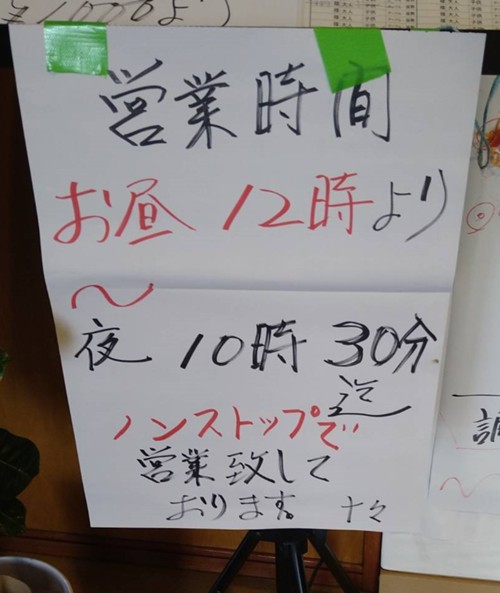 ¥1000より
営業時間
お昼 12時より
〜
夜 10時 30分
迄
ノンストップで
営業致して
おります。 十々
調
〜